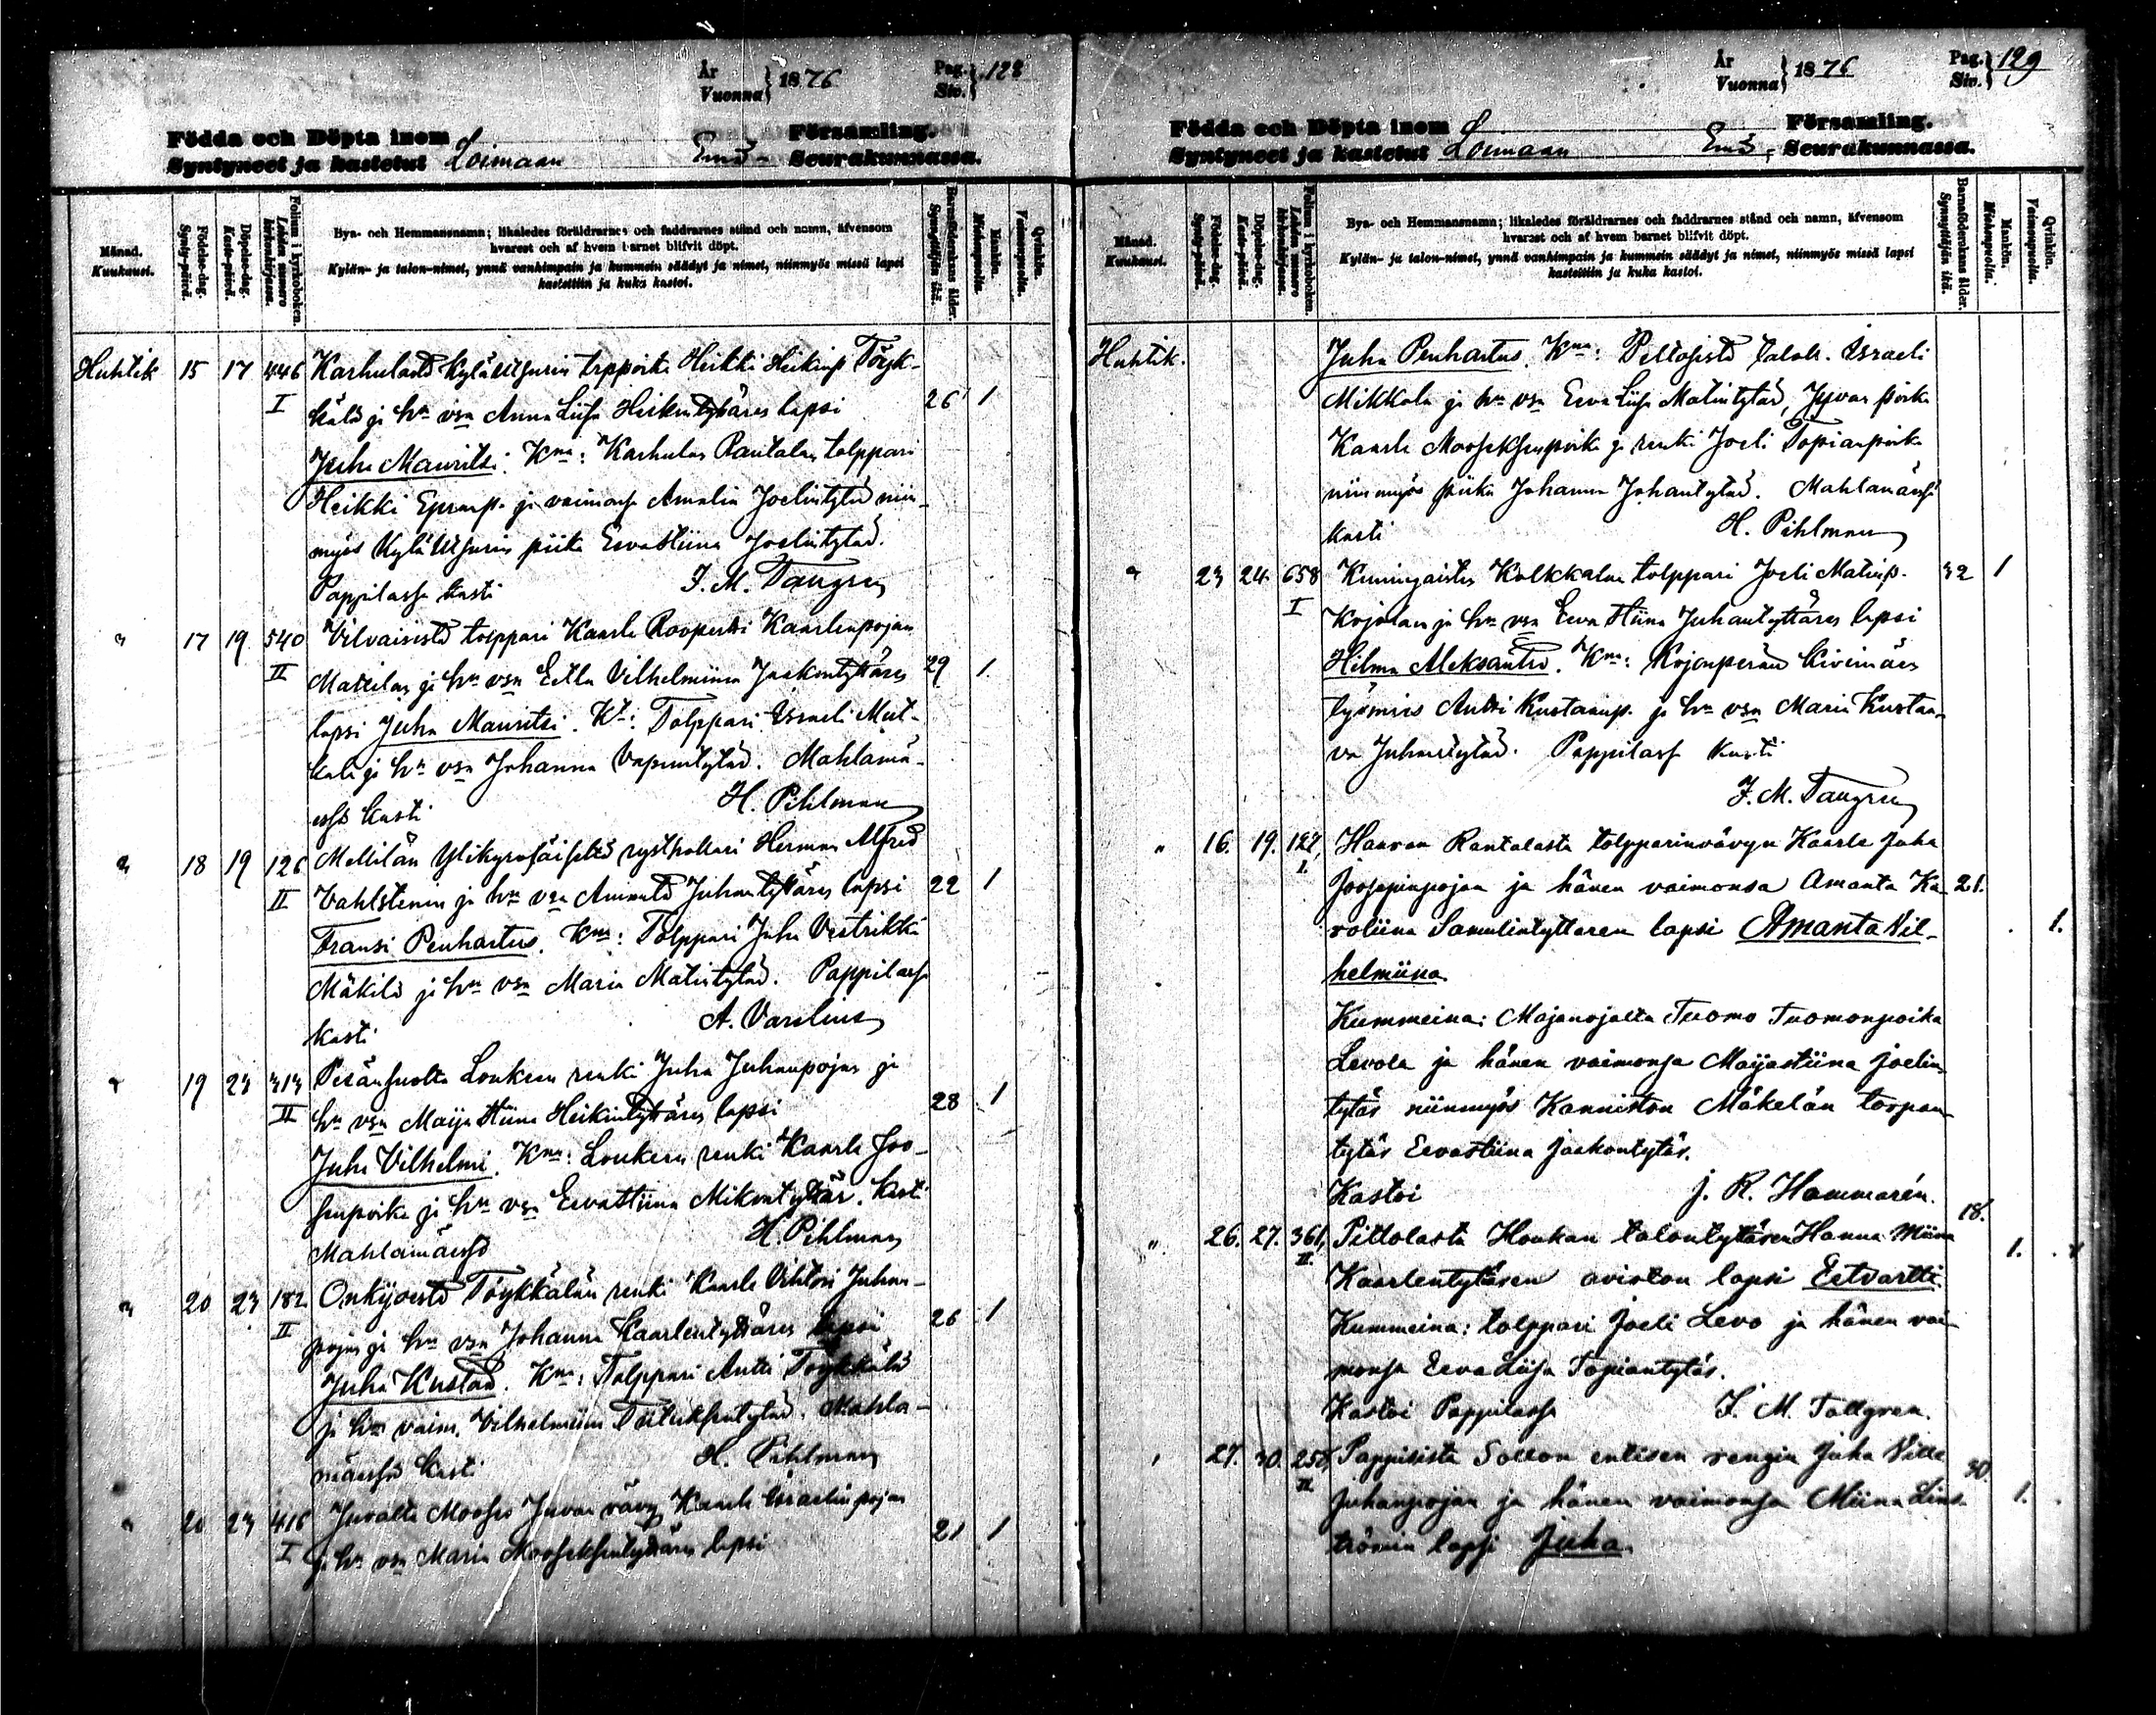 År
Vuonna } 1876
Pag.
Siv. } 128
Födda och Döpta inom Församling.
Syntyneet ja kastetut Loimaan Emä- Seurakunnassa.
Månad.
Kuukausi.
Födelse-dag.
Synty-päivä.
Döpelse-dag.
Kaste-päivä.
Folium i kyrkoboken.
Lehden numero kirkonkirjassa.
Bya- och Hemmansnamn; likaledes föräldrarnes och faddrarnes stånd och namn, äfvensom
hvarest och af hvem barnet blifvit döpt.
Kylän- ja talon-nimet, ynnä vanhimpain ja kummein säädyt ja nimet, niinmyös missä lapsi
kastettiin ja kuka kastoi.
Barnaföderskans ålder.
Synnyttäjän ikä.
Mankön.
Miehenpuolia.
Qvinkön.
Vaimonpuolia.
Huhtik 15 17 446 Karhulasta Heikki Heikinp. Töyk-
I kälä ja hn vsn Anna Liisa Heikintyttären lapsi 26 1
Juha Mauritsi. Kmt: Karhulan Rantalan tolppari
Heikki ja vaimonsa Amalia Joelintytär niin-
myös piika Eevastiina Joelintytär.
Pappilassa kasti
17 19 540 Vilvaisista tolppari Kaarle Roopertti Kaarlenpojan
II Mattilan ja hn vsn Eetla Vilhelmiina Jaakontyttären 29 1.
lapsi Juha Mauritsi. Kt: Tolppari Israeli
ja hn vsn Johanna Mahlamä-
essä kasti H. Pihlman
18 19 126 Mellilän rysthollari Herman Alfred
II Vahlstenin ja hn vsn Juhantyttären lapsi 22 1
Fransi Penhartus. Kmt: Tolppari Juha Vestrikki
Mäkilä ja hn vsn Maria Matintytär. Pappilassa
kasti A. Varelius
19 23 313 Pesänsuolta Loukeen renki Juha Juhanpojan ja
II hn vsn Maija Stiina Heikintyttären lapsi 28 1
Juha Vilhelmi. Kmt: Loukeen renki Kaarle Joo-
senpoika ja hn vsn Eevastiina Mikontytär. Kasti
Mahlamäessä H. Pihlman
20 23 182 Onkijoesta Töykkälän renki Kaarle Vihtori Juhan-
II pojan ja hn vsn Johanna Kaarlentyttären lapsi 26 1
Juha Kustaa. Kmt: Tolppari Antti Töykkälä
ja hn vaim. Vilhelmiina Mahla-
mäessä kasti H. Pihlman
20 23 416 Juvalta Mooses Juvan vävy Kaarle Israelinpojan
I ja hn vsn Maria Mooseksentyttären lapsi 21 1
År
Vuonna } 1876
Pag.
Siv. } 129
Födda och Döpta inom Församling.
Syntyneet ja kastetut Loimaan Emä- Seurakunnassa.
Månad.
Kuukausi.
Födelse-dag.
Synty-päivä.
Döpelse-dag.
Kaste-päivä.
Folium i kyrkoboken.
Lehden numero kirkonkirjassa.
Bya- och Hemmansnamn; likaledes föräldrarnes och faddrarnes stånd och namn, äfvensom
hvarest och af hvem barnet blifvit döpt.
Kylän- ja talon-nimet, ynnä vanhimpain ja kummein säädyt ja nimet, niinmyös missä lapsi
kastettiin ja kuka kastoi.
Barnaföderskans ålder.
Synnyttäjän ikä.
Mankön.
Miehenpuolia.
Qvinkön.
Vaimonpuolia.
Huhtik. Juha Penhartus. Kmt: Israeli
Mikkola ja hn vsn Eeva Liisa Matintytär, Juvan poika
Kaarle Mooseksenpoika ja renki Joeli Topianpoika
niinmyös piika Johanna Juhantytär. Mahlamäessä
kasti H. Pihlman
23 24. 658 Kolkkalan tolppari Joeli Matinp. 32 1
I Kojolan ja hn vsn Eeva Stiina Juhantyttären lapsi
Hilma Aleksantra. Kmt: Kojonperän
työmies Antti Kustaanp. ja hn vsn Maria Kustaa-
va Juhantytär. Pappilassa kasti
" 16. 19. 127, Haaran Rantalasta tolpparinvävyn Kaarle Juha
I. Joosepinpojan ja hänen vaimonsa Amanta Ka- 21.
roliina Samulintyttären lapsi Amanta Vil- 1.
helmiina.
Kummeina: Majanojalta Tuomo Tuomonpoika
Levola ja hänen vaimonsa Maijastiina Joelin-
tytär niinmyös Kanniston Mäkelän torpan-
tytär Eevastiina Jaakontytär.
Kastoi J. R. Hammarén.
" 26. 27. 361, Piltolasta Honkan talontyttären Hanna Miina 18. 1.
II. Kaarlentyttären aviston lapsi Eetvartti.
Kummeina: tolppari Joeli Levo ja hänen vai-
monsa EevaLiisa Topiantytär.
Kastoi Pappilassa J. M. Tallgren.
27. 30. 258, Pappisista Sollon entisen rengin Juha Ville 30.
II Juhanpojan ja hänen vaimonsa Miina Lins- 1.
trömin lapsi Juha.